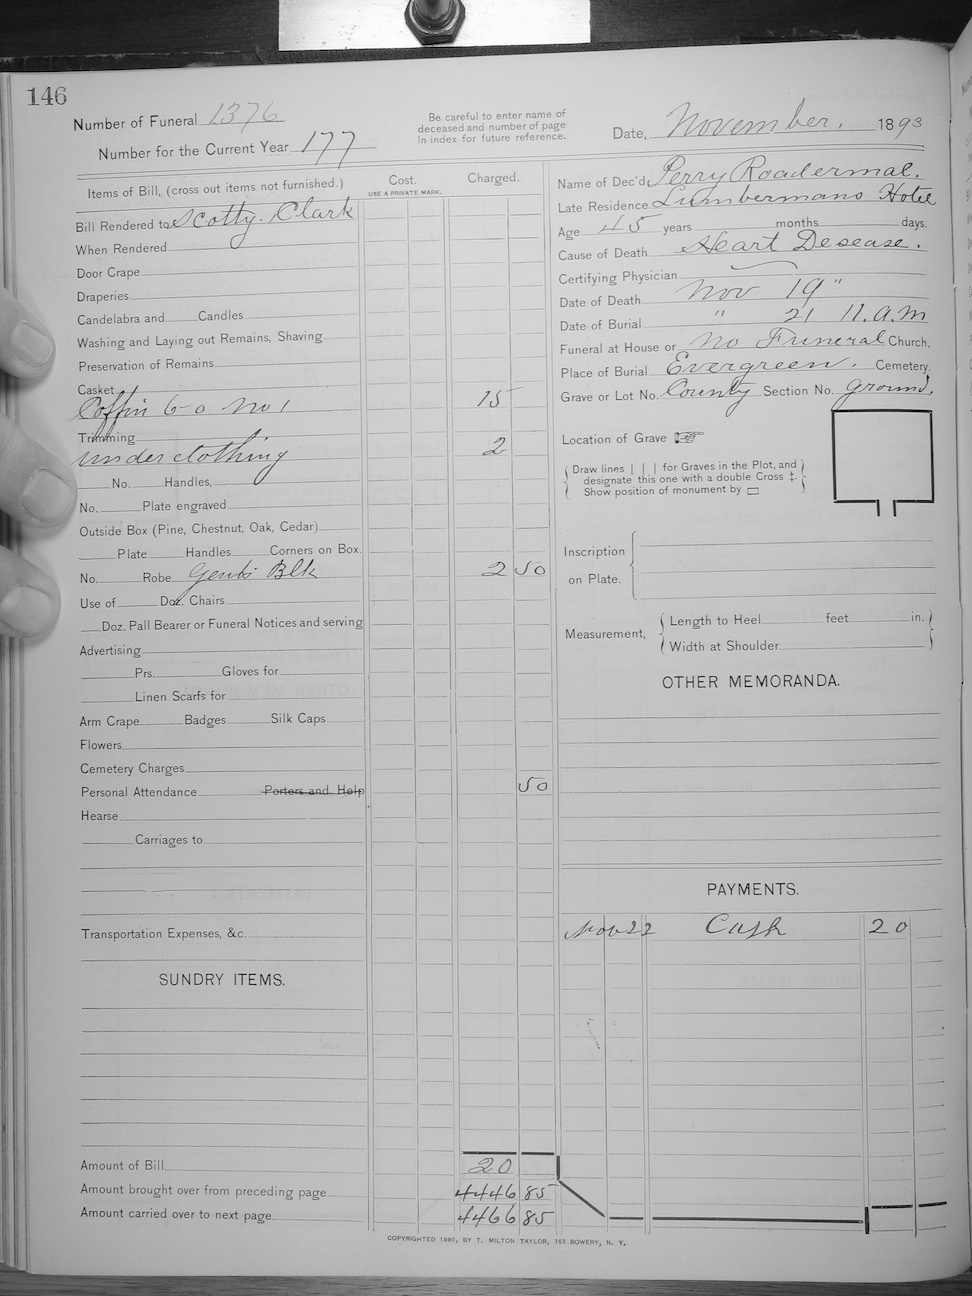 146
Number of Funeral 1376
Number for the Current Year 177
Be careful to enter name of
deceased and number of page
in index for future reference.
Date, November. 1893
Items of Bill, (cross out items not furnished.)
Cost.
USE A PRIVATE MARK.
Charged.
Bill Rendered to Scotty. Clark
When Rendered
Door Crape
Draperies
Candelabra and Candles
Washing and Laying out Remains, Shaving
Preservation of Remains
Casket
Coffin 6-0 No 1 15
Trimming
underclothing 2
No. Handles,
No. Plate engraved
Outside Box (Pine, Chestnut, Oak, Cedar)
Plate Handles Corners on Box.
No. Robe Gents Blk 2 50
Use of Doz. Chairs
Doz. Pall Bearer or Funeral Notices and serving
Advertising
Prs. Gloves for
Linen Scarfs for
Arm Crape Badges Silk Caps
Flowers
Cemetery Charges
Personal Attendance Porters and Help 50
Hearse
Carriages to
Transportation Expenses, &c.
SUNDRY ITEMS.
Amount of Bill 20
Amount brought over from preceding page 4446 85
Amount carried over to next page 4466 85
Name of Dec'd, Perry Roadermal.
Late Residence Lumbermans Hotel
Age 45 years months days.
Cause of Death Heart Desease.
Certifying Physician
Date of Death Nov 19"
Date of Burial " 21 11. A.M
Funeral at House or No Funeral Church.
Place of Burial Evergreen. Cemetery.
Grave or Lot No. County Section No. ground.
Location of Grave ☞
Draw lines | | | for Graves in the Plot, and
designate this one with a double Cross ‡.
Show position of monument by ▭
Inscription
on Plate.
Measurement,
Length to Heel feet in.
Width at Shoulder
OTHER MEMORANDA.
PAYMENTS.
Nov 22 Cash 20
COPYRIGHTED 1890, BY T. MILTON TAYLOR, 163 BOWERY, N. Y.